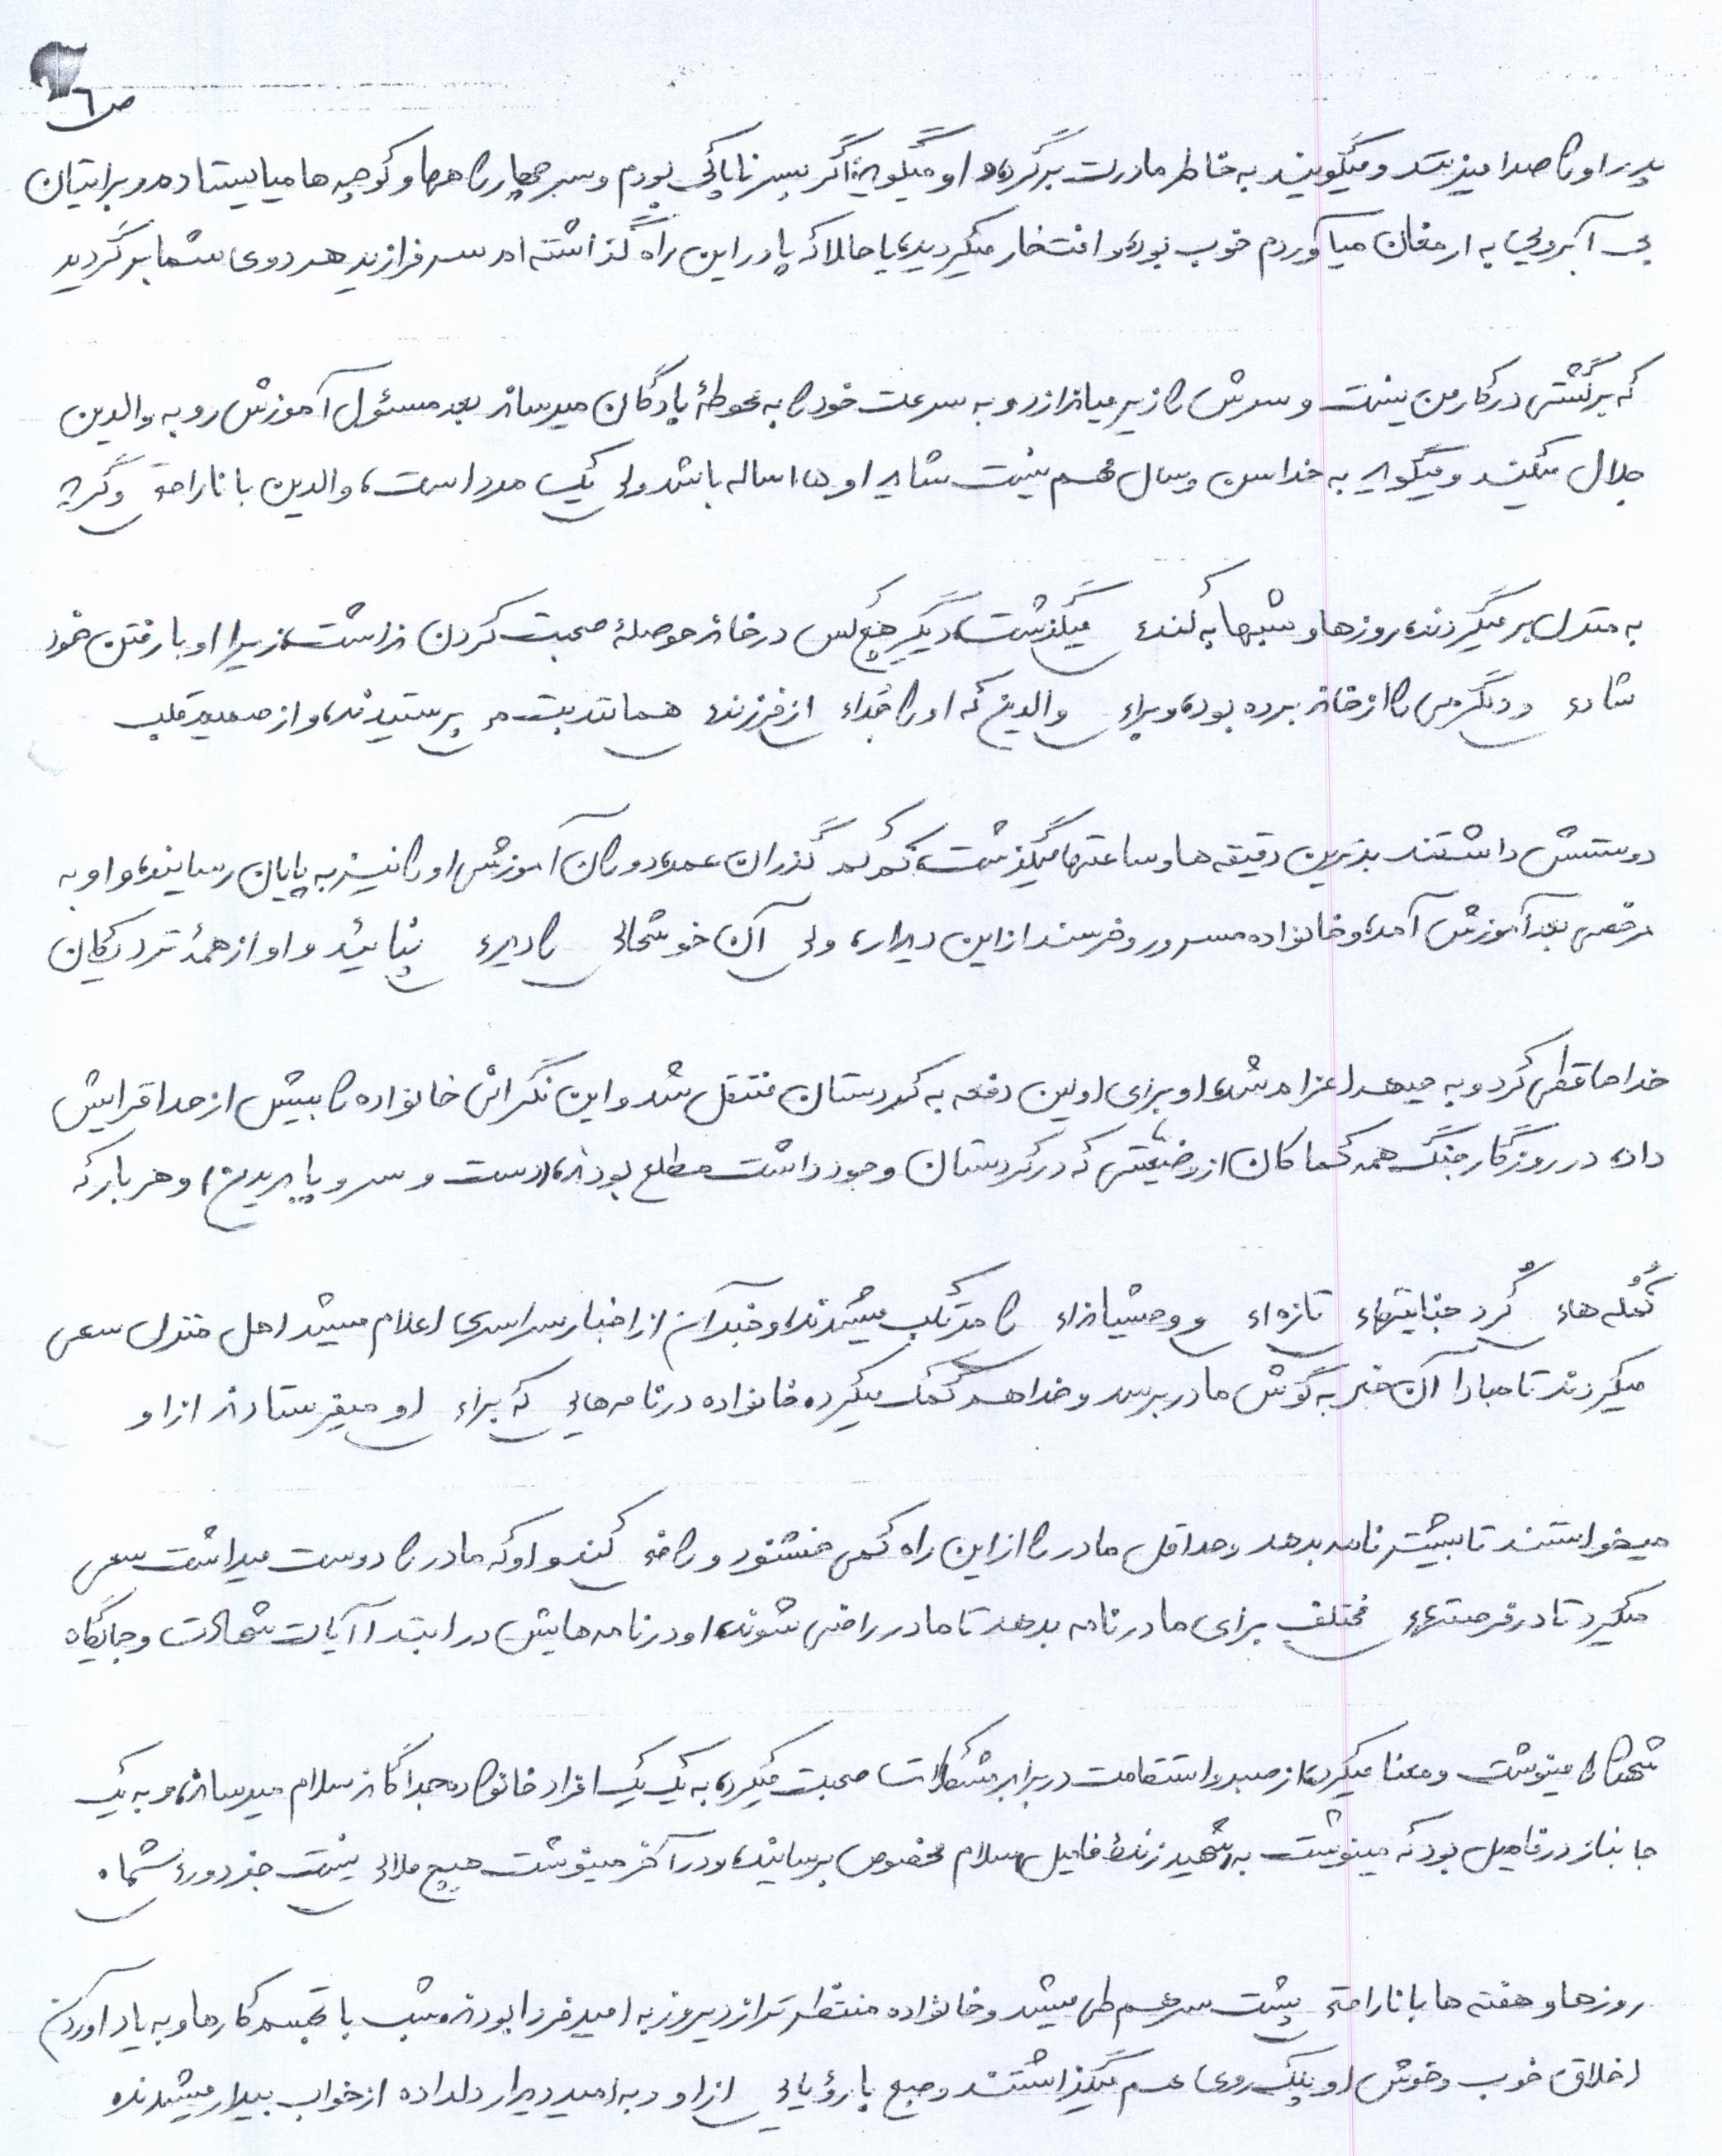 ص ٦
پدر او را صدا میزنند و میگویند به خاطر مادرت برگرد، او میگوید: اگر پسر ناپاکی بودم و سر چهار راهها و کوچه ها میایستادم و برایتان
بی آبرویی به ارمغان میآوردم خوب بود، و افتخار میکردید، یا حالا که پا در این راه گذاشته ام سرفرازید هر دوی شما برگردید
که برگشتی در کار من نیست و سرش را زیر میاندازد و به سرعت خود را به محوطهٔ پادگان میرساند بعد مسئول آموزش رو به والدین
جلال میکند و میگوید به خدا سن و سال مهم نیست شاید او ۱۵ ساله باشد ولی یک مرد است، والدین با ناراحتی و گریه
به منزل بر میگردند، روزها و شبها به کندی میگذشت، دیگر هیچ کس در خانه حوصلهٔ صحبت کردن نداشت، زیرا او با رفتن خود
شادی و دلگرمی را از خانه برده بود، و برای والدینی که او را جدای از فرزندی همانند بت می پرستیدند، و از صمیم قلب
دوستش داشتند بدترین دقیقه ها و ساعتها میگذشت، کم کم گذران عمر، دوران آموزش او را نیز به پایان رسانید، و او به
مرخصی بعد آموزش آمد، و خانواده مسرور و خرسند از این دیدار، ولی آن خوشحالی را دیری نپائید و او از همهٔ نزدیکان
خداحافظی کرد و به جبهه اعزام شد، او برای اولین دفعه به کردستان منتقل شد و این نگرانی خانواده را بیش از حد افزایش
داد، در روزگار جنگ همه کماکان از وضعیتی که در کردستان وجود داشت مطلع بودند، (دست و سر و پا بریدن) و هر بار که
کُمُله های کُرد جنایتهای تازه ای و وحشیانه ای را مرتکب میشدند، و خبر آن از اخبار سراسری اعلام میشد اهل منزل سعی
میکردند تا مبادا آن خبر به گوش مادر برسد و خدا هم کمک میکرد، خانواده در نامه هایی که برای او میفرستادند از او
میخواستند تا بیشتر نامه بدهد و حداقل مادر را از این راه کمی خشنود و راضی کند و او که مادر را دوست میداشت سعی
میکرد تا در فرصتهای مختلف برای مادر نامه بدهد تا مادر راضی شوند، او در نامه هایش در ابتدا آیات شهادت و جایگاه
شهدا را مینوشت و معنا میکرد، از صبر و استقامت در برابر مشکلات صحبت میکرد، به یک یک افراد خانواده جداگانه سلام میرساند، و به یک
جانباز در فامیل بود که مینوشت به شهید زندهٔ فامیل سلام مخصوص برسانید، و در آخر مینوشت هیچ ملالی نیست جز دوری شما.
روزها و هفته ها با ناراحتی پشت سر هم طی میشد و خانواده منتظر تر از دیروز به امید فردا بودند، شب با تجسم کارها و به یاد آوردن
اخلاق خوب و خوش او پلک روی هم میگذاشتند و صبح با رؤیایی از او و به امید دیدار دلداده از خواب بیدار میشدند.